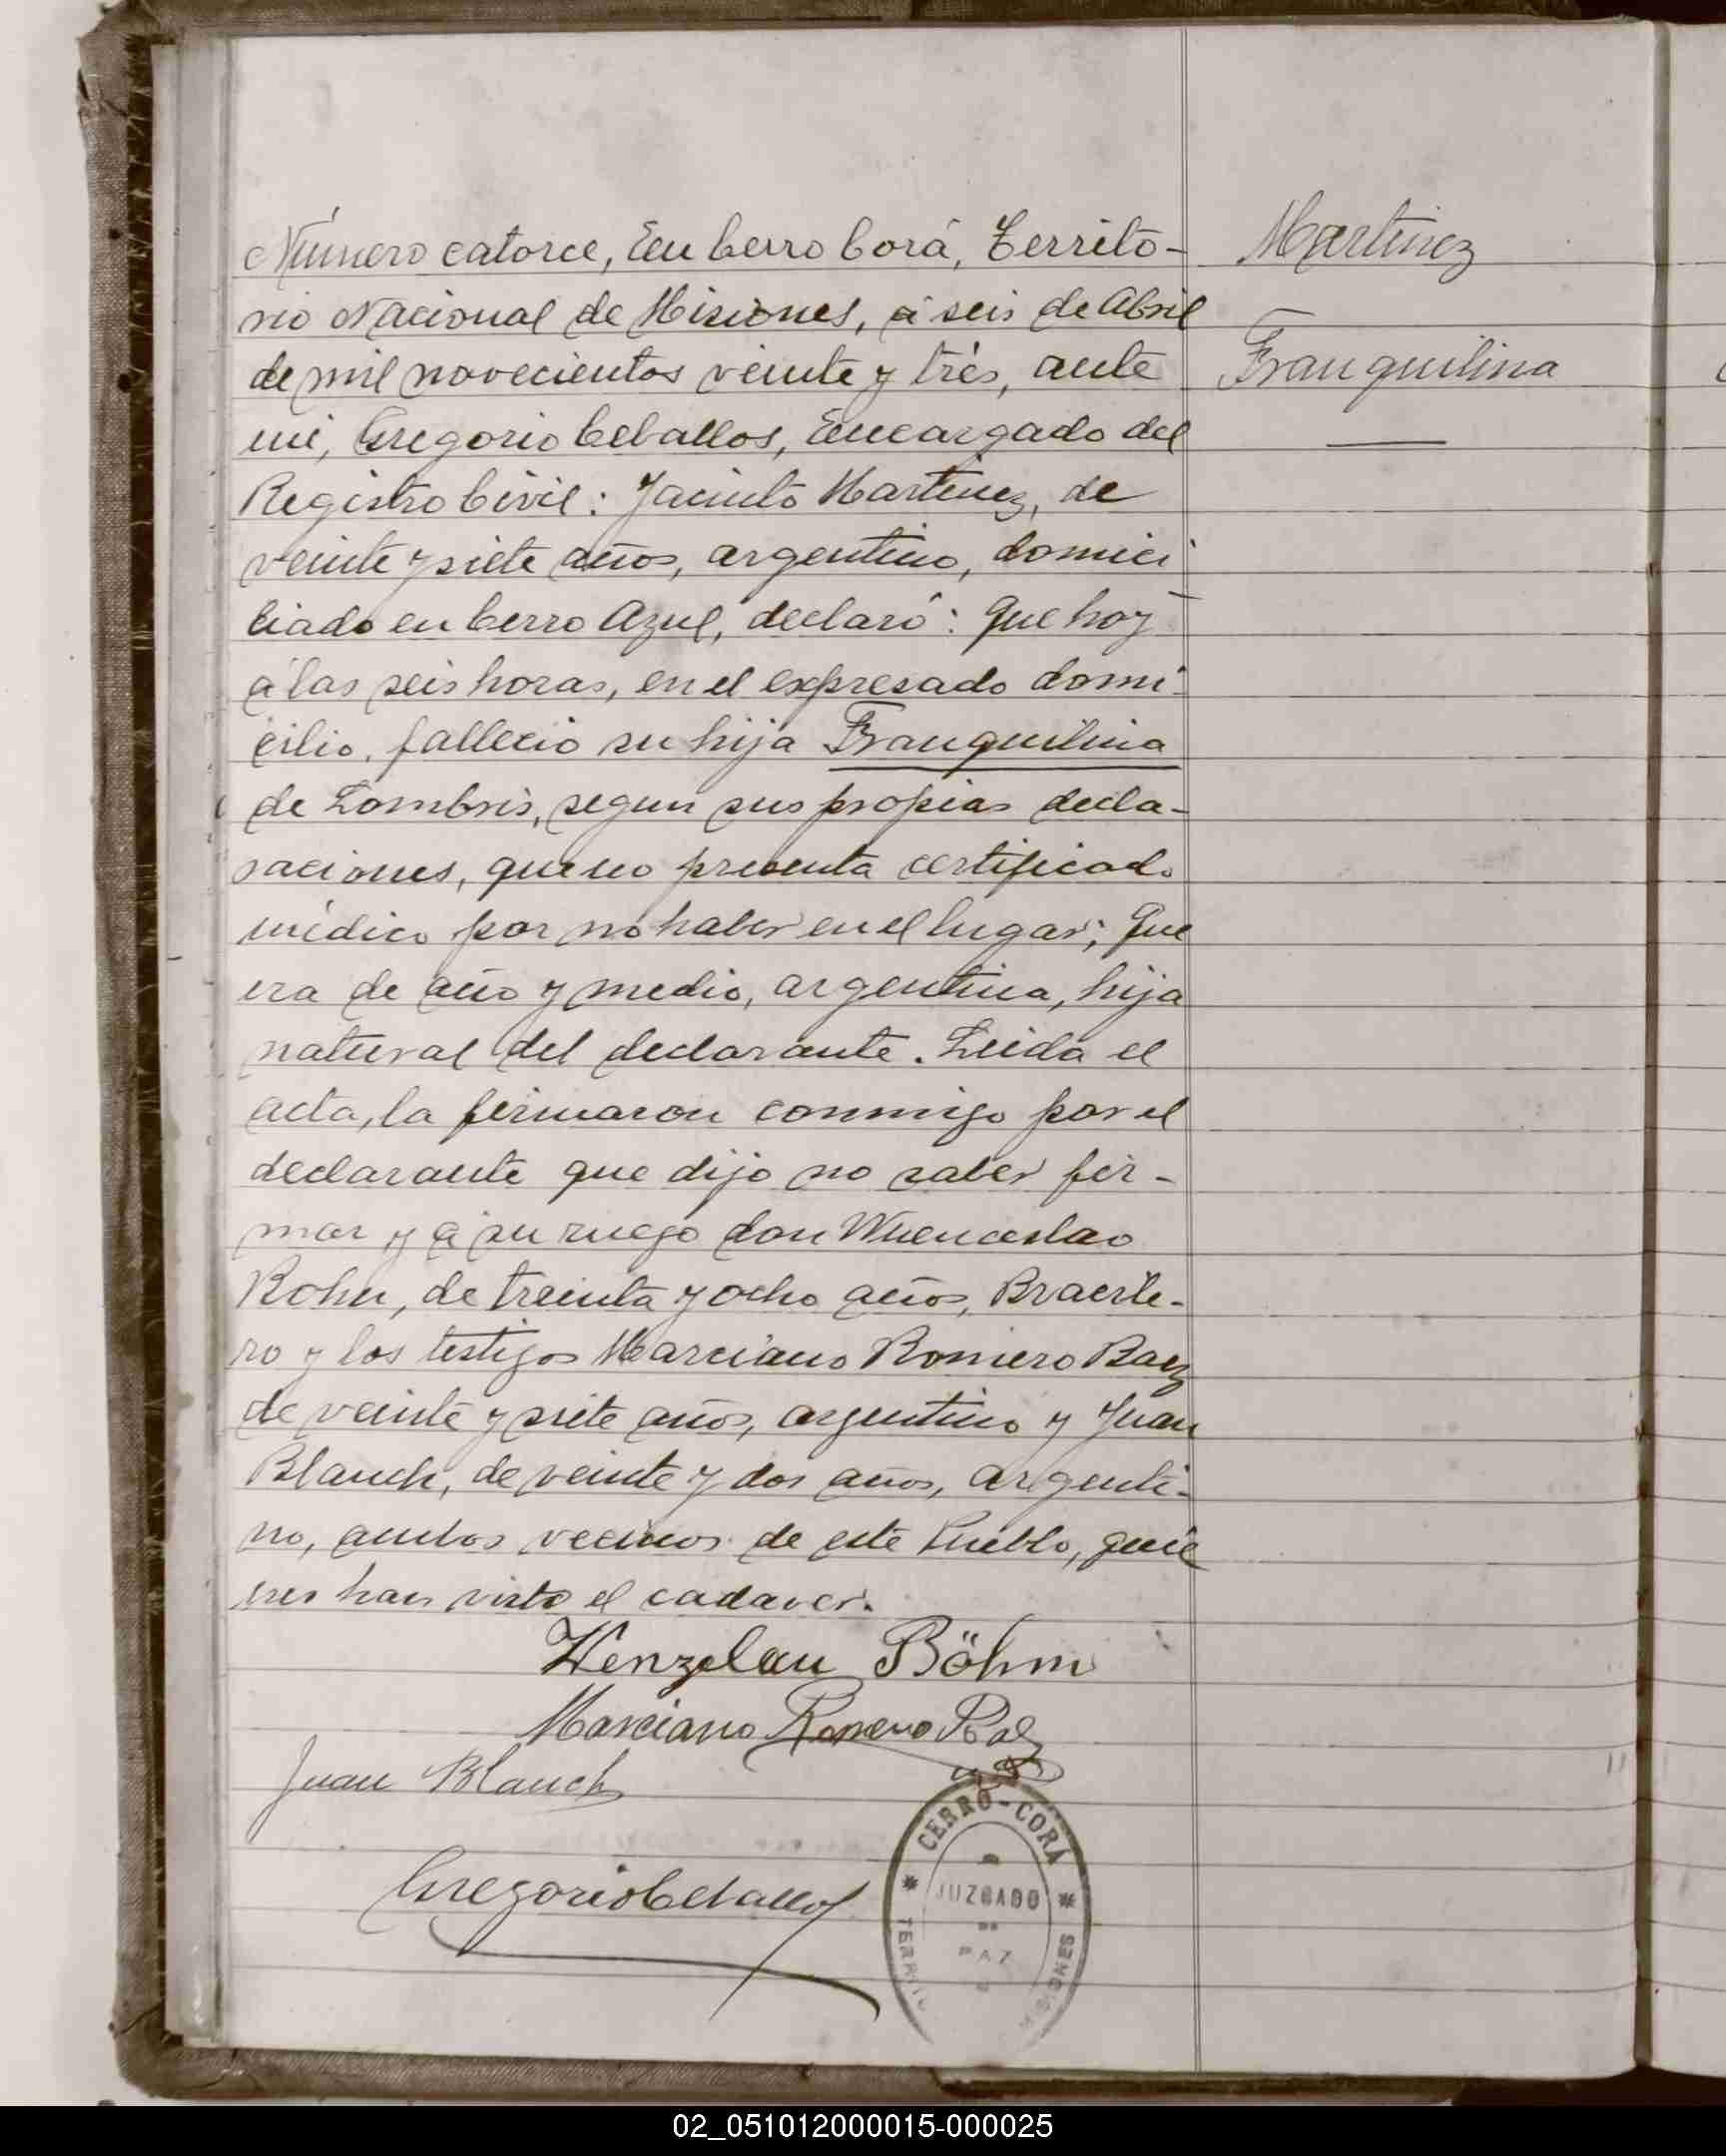 Número catorce, En Cerro Corá, Territo-
rio Nacional de Misiones, á seis de Abril
de mil novecientos veinte y trés, ante
mi, Gregorio Ceballos, Encargado del
Registro Civil: Jacinto Martinez, de
veinte y siete años, argentino, domici
liado en Cerro Azul, declaró: Que hoy
á las seis horas, en el expresado domi-
cilio, fallecio su hija Tranquilina
de Lombris, segun sus propias decla-
raciones, que no presenta certificado
médico por no haber en el lugar; Que
era de año y medio, argentina, hija
natural del declarante. Leida el
acta, la firmaron conmigo por el
declarante que dijo no saber fir-
mar y á su ruego don Wuenceslao
Bohn, de treinta y ocho años, Bracile-
ro y los testigos Marciano Romero Baez
de veinte y siete años, argentino y Juan
Blanch, de veinte y dos años, argenti-
no, ambos vecinos de este Pueblo, quie
nes han visto el cadaver.
Wenzslau Böhm
Marciano Romero Baez
Juan Blanch
Gregorio Ceballos
CERRO-CORÁ
JUZGADO
DE
PAZ
MISIONES
Martinez
Tranquilina
02_051012000015-000025